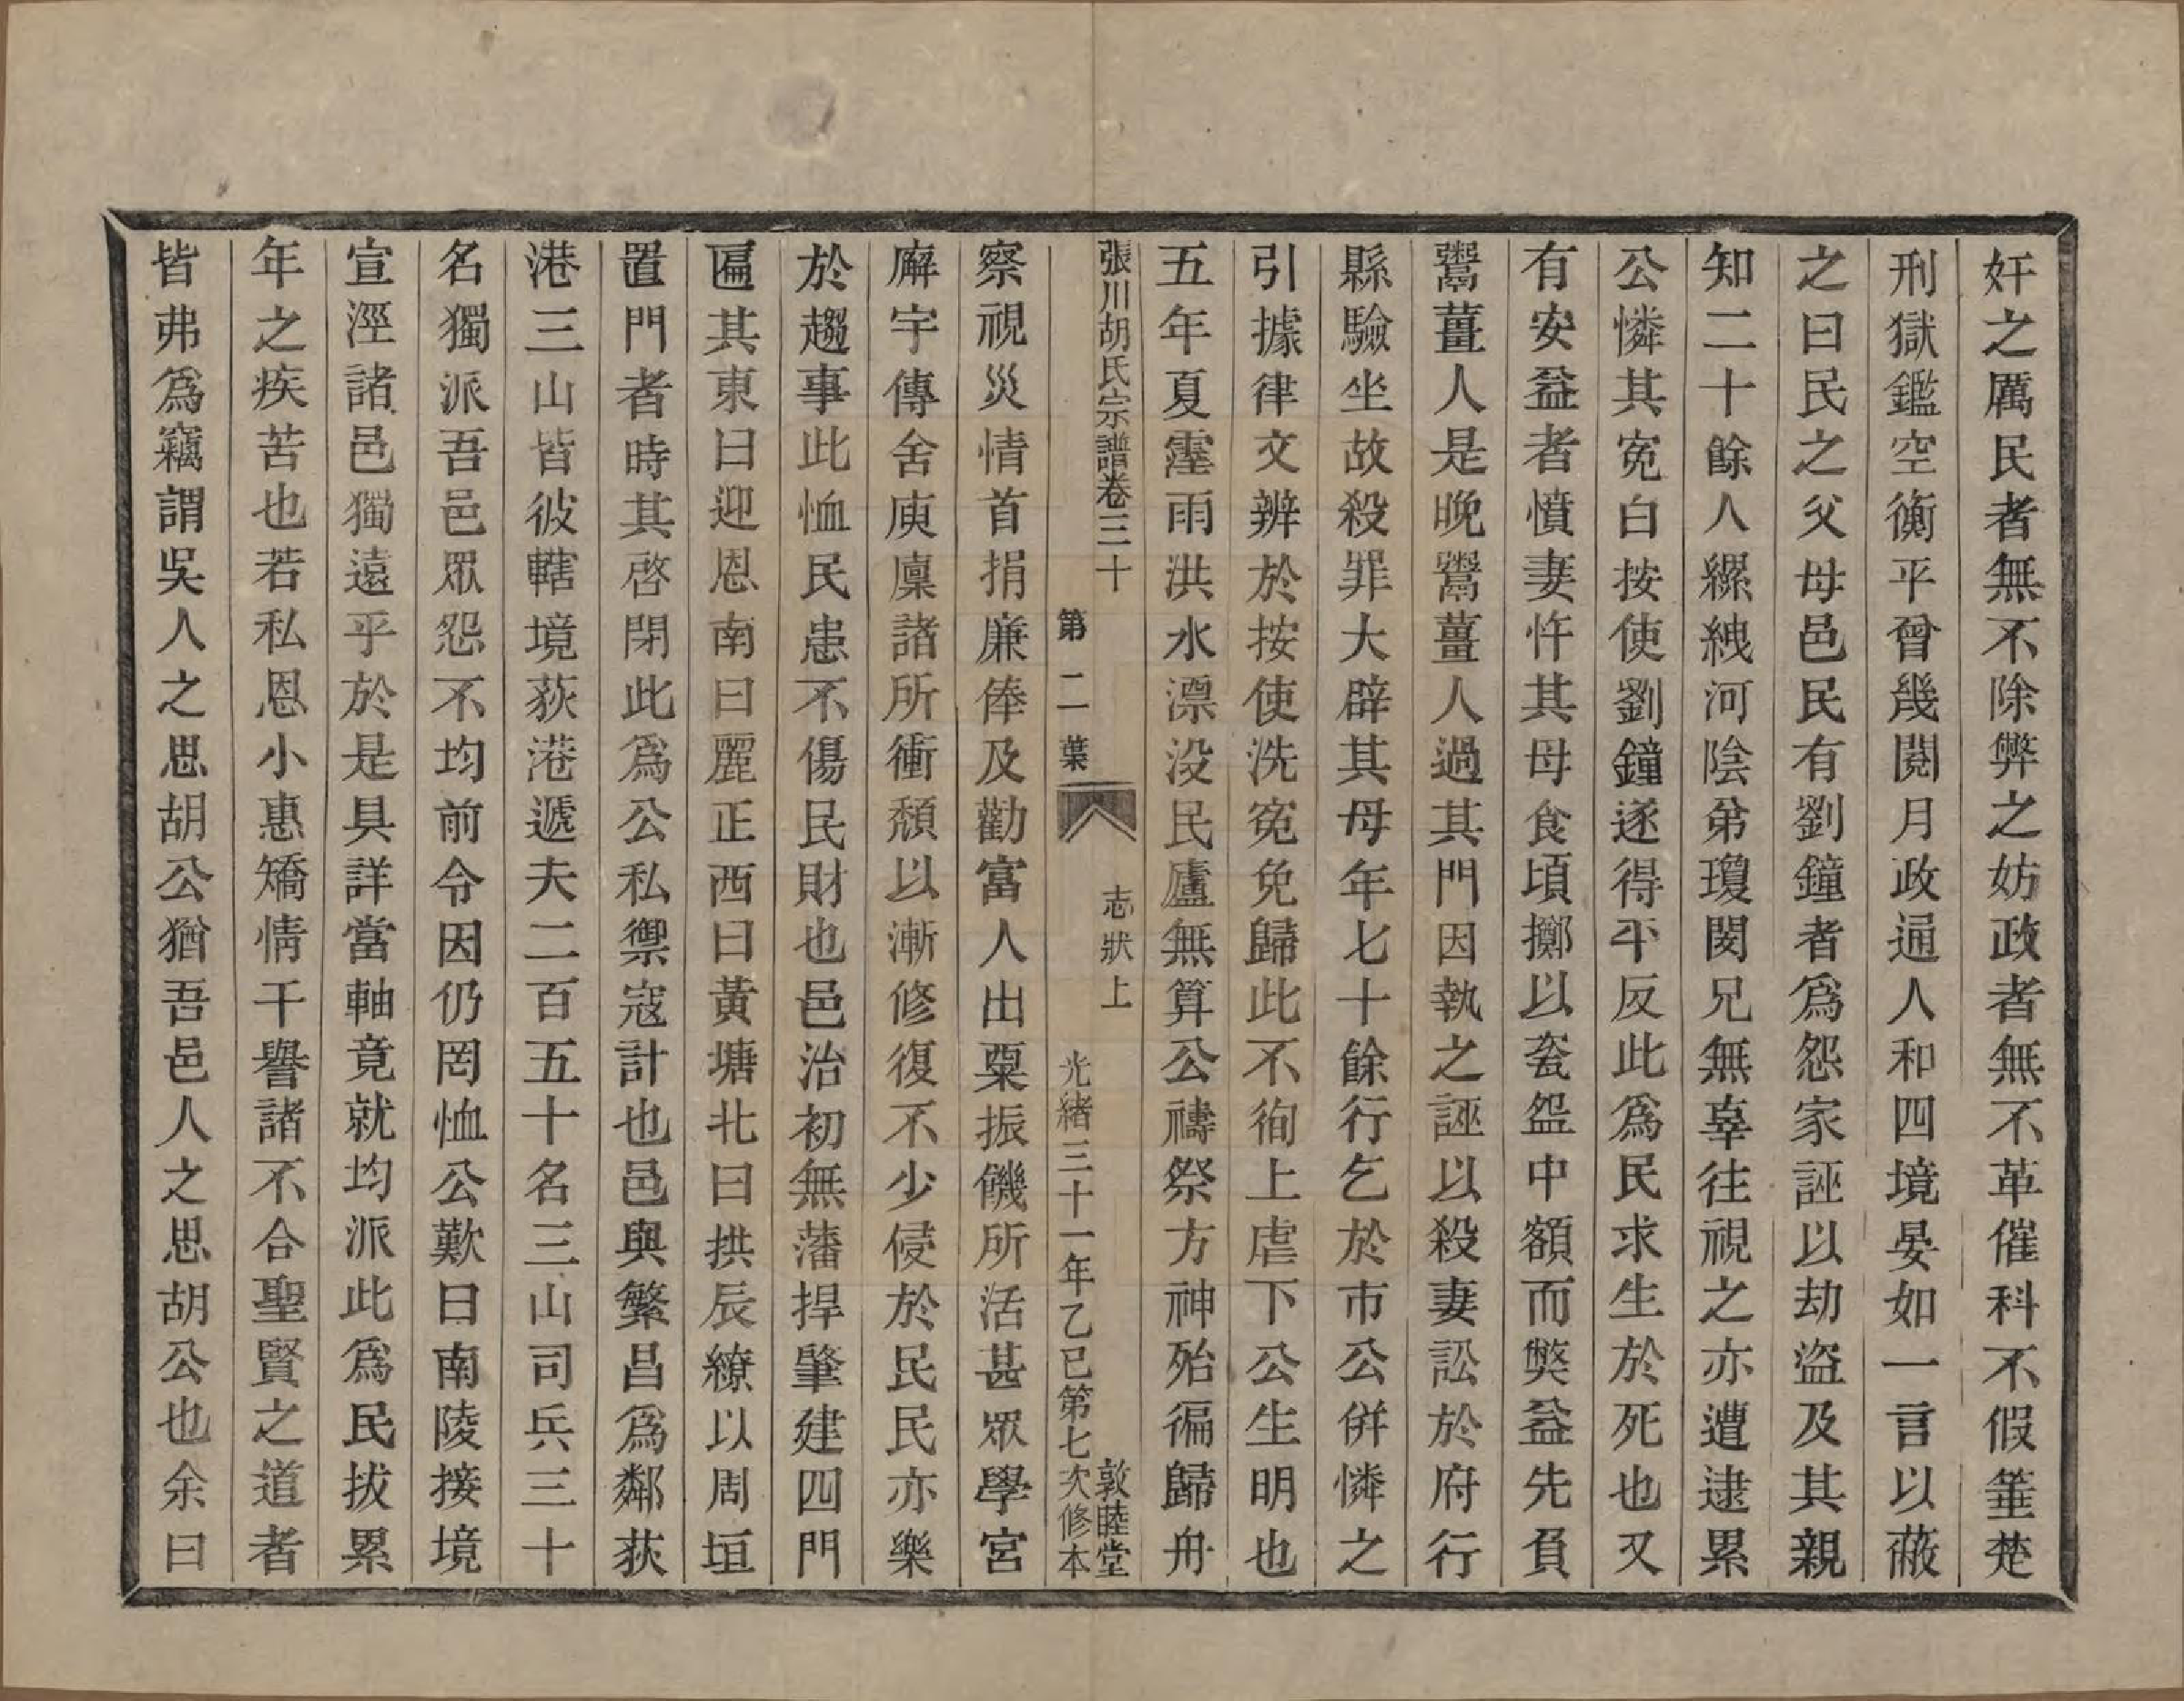 奸之厲民者無不除弊之妨政者無不革催科不假箠楚
刑獄鑑空衡平曾幾閱月政通人和四境晏如一言以蔽
之曰民之父母邑民有劉鐘者爲怨家誣以劫盜及其親
知二十餘人縲絏河陰弟瓊閔兄無辜往視之亦遭逮累
公憐其寃白按使劉鐘逐得平反此爲民求生於死也又
有安益者憤妻忤其母食頃擲以瓷盌中額而獘益先負
鬻薑人是晚鬻薑人過其門因執之誣以殺妻訟於府行
縣驗坐故殺罪大辟其母年七十餘行乞於市公併憐之
引據律文辨於按使洗寃免歸此不徇上虐下公生明也
五年夏霪雨洪水漂没民廬無算公禱祭方神殆徧歸舟
張川胡氏宗譜卷三十
第二葉
志狀上
光緒三十一年乙巳第七次修本
敦睦堂
察視災情首捐廉俸及勸富人出粟振饑所活甚眾學宮
廨宇傳舍庾廩諸所衝頹以漸修復不少侵於民民亦樂
於趨事此恤民患不傷民財也邑治初無藩捍肇建四門
匾其東曰迎恩南曰麗正西曰黃塘北曰拱辰繚以周垣
置門者時其啓閉此爲公私禦寇計也邑與繁昌爲鄰荻
港三山皆彼轄境荻港遞夫二百五十名三山司兵三十
名獨派吾邑眾怨不均前令因仍罔恤公歎曰南陵接境
宣涇諸邑獨遠乎於是具詳當軸竟就均派此爲民拔累
年之疾苦也若私恩小惠矯情干譽諸不合聖賢之道者
皆弗爲竊謂吳人之思胡公猶吾邑人之思胡公也余曰